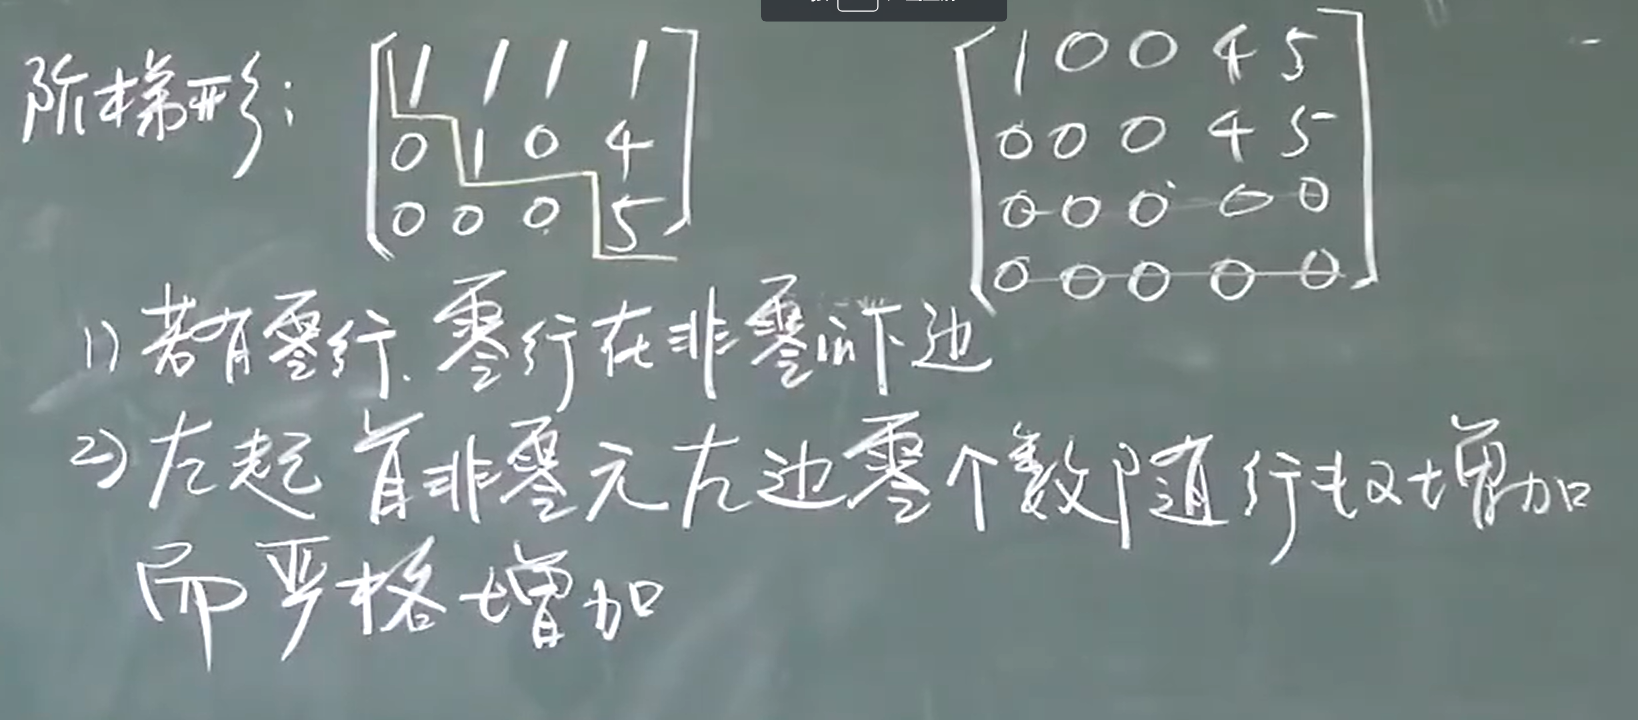 阶梯形:
1 1 1 1
0 1 0 4
0 0 0 5
1 0 0 4 5
0 0 0 4 5
0 0 0 0 0
0 0 0 0 0
1) 若有零行. 零行在非零的下边
2) 左起首非零元左边零个数随行数增加
而严格增加